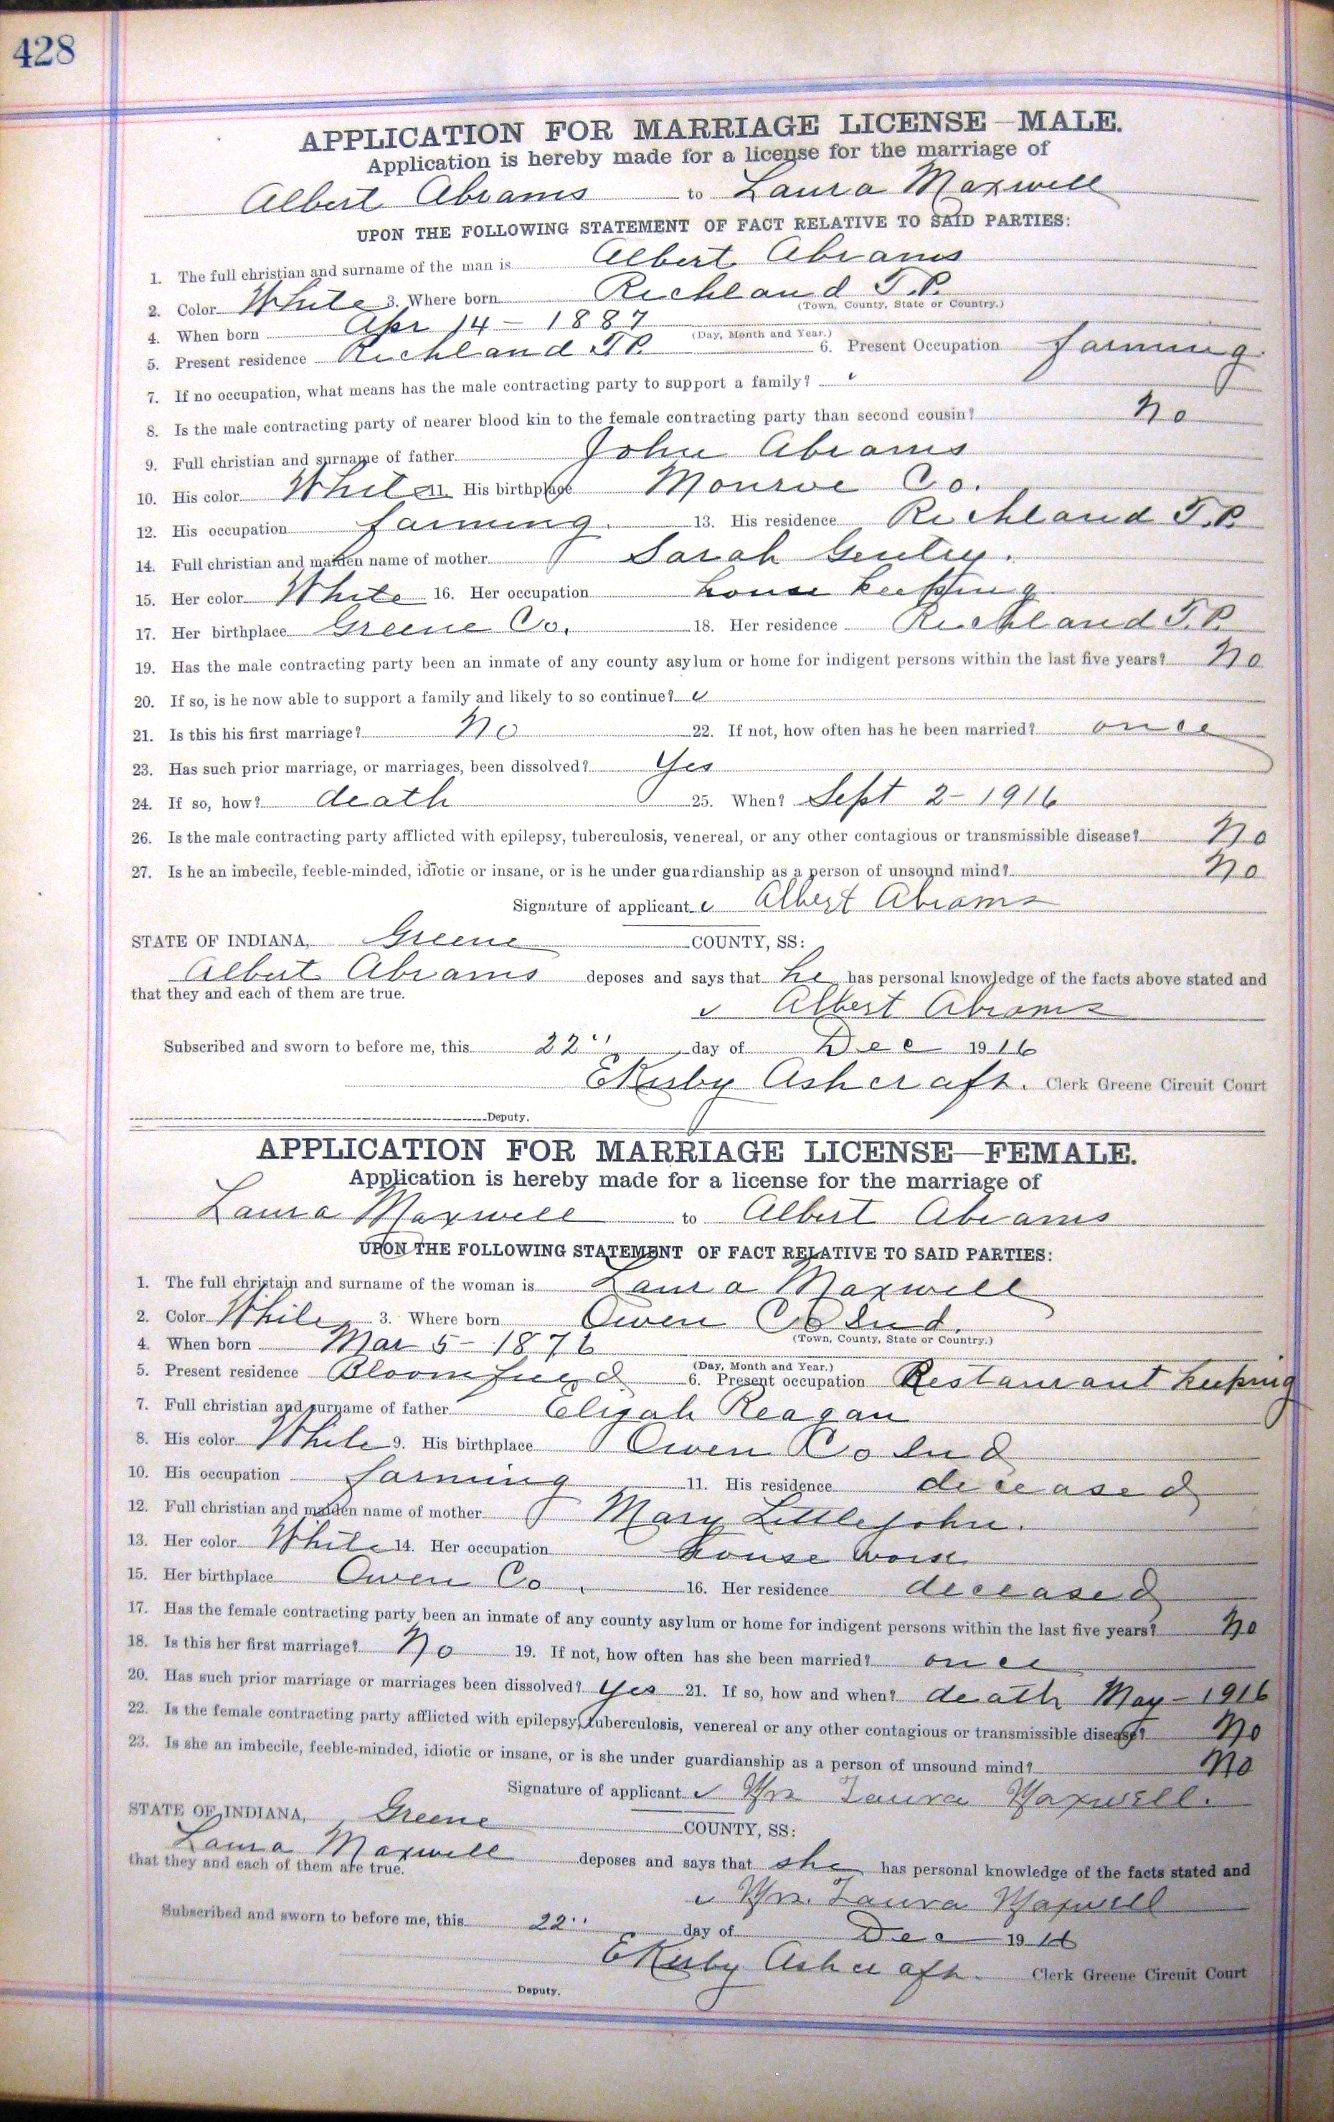 428
APPLICATION FOR MARRIAGE LICENSE—MALE.
Application is hereby made for a license for the marriage of
Albert Abrams to Laura Maxwell
UPON THE FOLLOWING STATEMENT OF FACT RELATIVE TO SAID PARTIES:
1. The full christian and surname of the man is Albert Abrams
2. Color White 3. Where born Richland T.P.
(Town, County, State or Country.)
4. When born Apr 14 - 1887
(Day, Month and Year.)
5. Present residence Richland T.P. 6. Present Occupation farming
7. If no occupation, what means has the male contracting party to support a family?
8. Is the male contracting party of nearer blood kin to the female contracting party than second cousin? No
9. Full christian and surname of father John Abrams
10. His color White 11. His birthplace Monroe Co.
12. His occupation farming. 13. His residence Richland T.P.
14. Full christian and maiden name of mother Sarah Gentry.
15. Her color White 16. Her occupation house keeping
17. Her birthplace Greene Co. 18. Her residence Richland T.P.
19. Has the male contracting party been an inmate of any county asylum or home for indigent persons within the last five years? No
20. If so, is he now able to support a family and likely to so continue?
21. Is this his first marriage? No 22. If not, how often has he been married? once
23. Has such prior marriage, or marriages, been dissolved? Yes
24. If so, how? death 25. When? Sept 2 - 1916
26. Is the male contracting party afflicted with epilepsy, tuberculosis, venereal, or any other contagious or transmissible disease? No
27. Is he an imbecile, feeble-minded, idiotic or insane, or is he under guardianship as a person of unsound mind? No
Signature of applicant Albert Abrams
STATE OF INDIANA, Greene COUNTY, SS:
Albert Abrams deposes and says that he has personal knowledge of the facts above stated and
that they and each of them are true.
Albert Abrams
Subscribed and sworn to before me, this 22" day of Dec 1916
E Kirby Ashcraft. Clerk Greene Circuit Court
Deputy.
APPLICATION FOR MARRIAGE LICENSE—FEMALE.
Application is hereby made for a license for the marriage of
Laura Maxwell to Albert Abrams
UPON THE FOLLOWING STATEMENT OF FACT RELATIVE TO SAID PARTIES:
1. The full christain and surname of the woman is Laura Maxwell
2. Color White 3. Where born Owen Co Ind.
(Town, County, State or Country.)
4. When born Mar 5 - 1876
(Day, Month and Year.)
5. Present residence Bloomfield 6. Present occupation Restaurant keeping
7. Full christian and surname of father Elijah Reagan
8. His color White 9. His birthplace Owen Co Ind
10. His occupation farming 11. His residence deceased
12. Full christian and maiden name of mother Mary Littlejohn.
13. Her color White 14. Her occupation house work
15. Her birthplace Owen Co. 16. Her residence deceased
17. Has the female contracting party been an inmate of any county asylum or home for indigent persons within the last five years? No
18. Is this her first marriage? No 19. If not, how often has she been married? once
20. Has such prior marriage or marriages been dissolved? yes 21. If so, how and when? death May - 1916
22. Is the female contracting party afflicted with epilepsy, tuberculosis, venereal or any other contagious or transmissible disease? No
23. Is she an imbecile, feeble-minded, idiotic or insane, or is she under guardianship as a person of unsound mind? No
Signature of applicant Mrs Laura Maxwell.
STATE OF INDIANA, Greene COUNTY, SS:
Laura Maxwell deposes and says that she has personal knowledge of the facts stated and
that they and each of them are true.
Mrs. Laura Maxwell
Subscribed and sworn to before me, this 22" day of Dec 1916
E Kirby Ashcraft. Clerk Greene Circuit Court
Deputy.